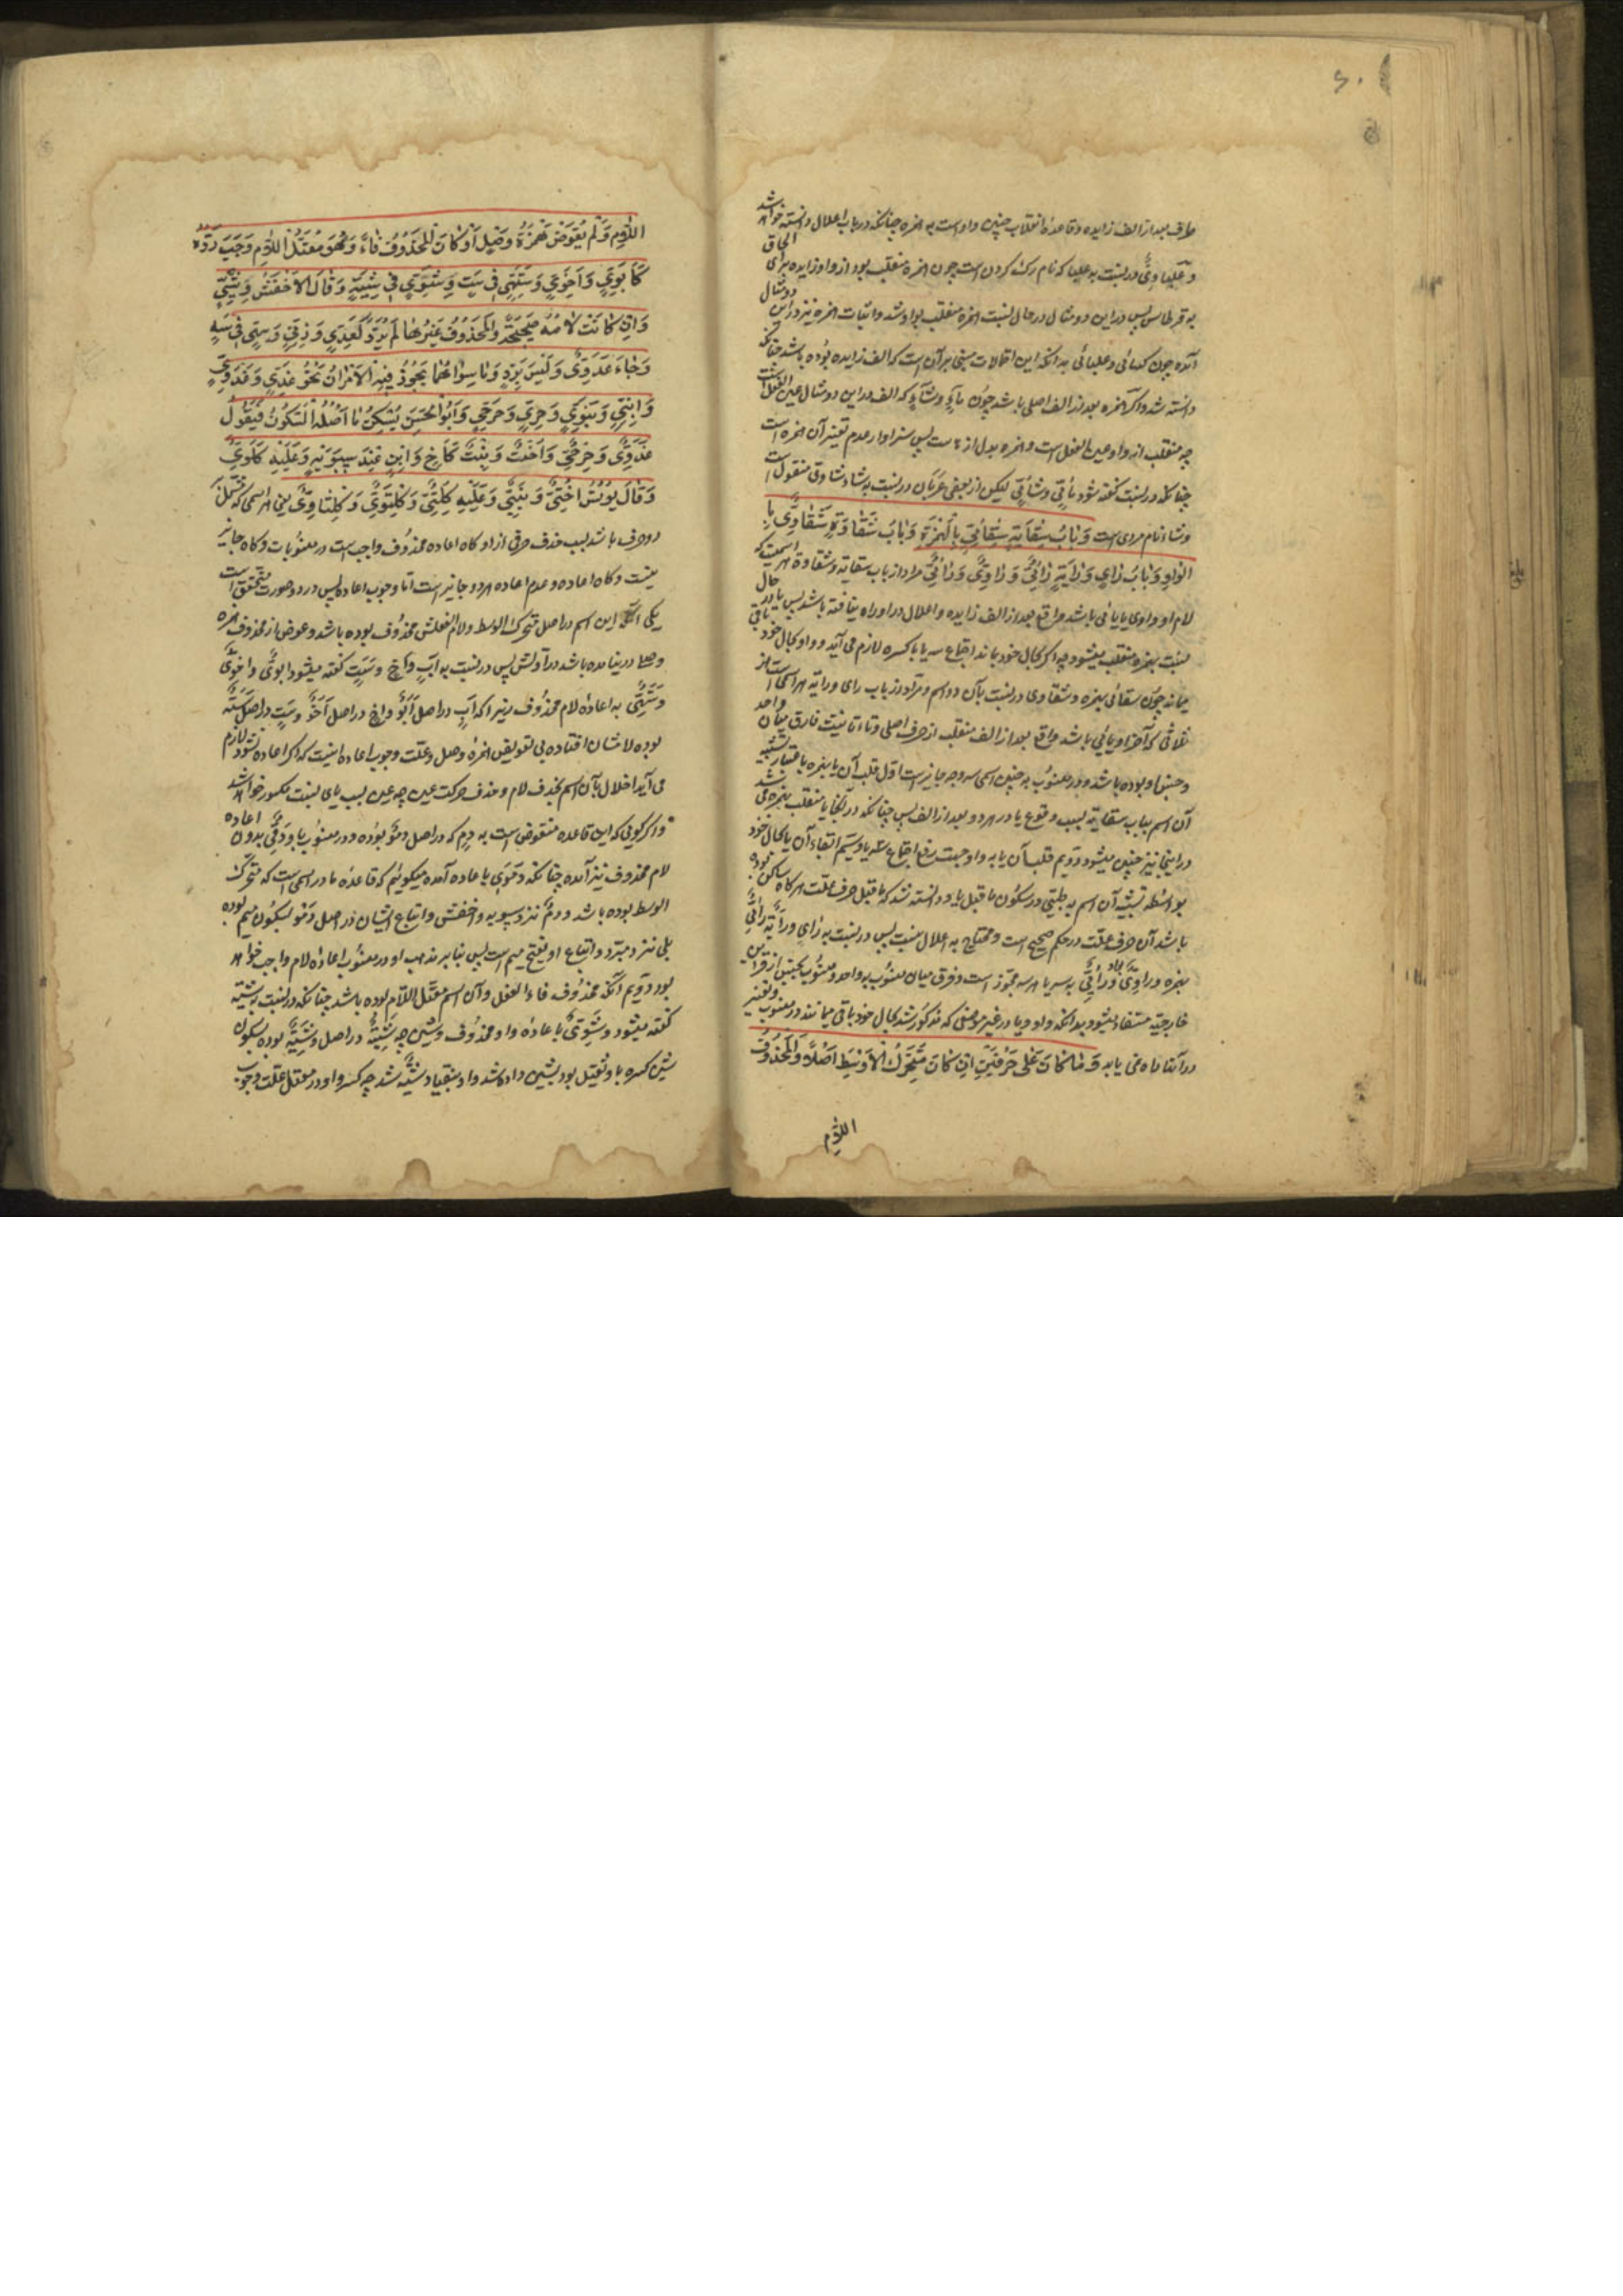 طرف بعد از الف زایده و قاعدهٔ انقلاب چنین واو است به همزه چنانکه در باب اعلال دانسته خواهد شد
و علباوی در نسبت به علبا که نام رک کردن است چون همزه منقلب بود از واو زایده برای الحاق
به قرطاس پس در این دو مثال در حال نسبت همزه منقلب بواو شد و اثبات همزه نیز در این دو مثال
آمده چون کسائی و علبائی بدانکه این احتمالات مبنی بر آن است که الف زایده بوده باشد چنانکه
دانسته شد و اگر همزه بعد از الف اصلی باشد چون ماء و شاء که الف در این دو مثال عین الفعل است
چه منقلب از واو عین الفعل است و همزه بدل از ها است پس سزاوار عدم تغییر آن همزه است
چنانکه در نسبت گفته شود مائی و شائی لیکن از بعضی عربان در نسبت به شاء شاوی منقول است
و شاء نام مردی است وَبَابُ سِقَايَةٍ سِقَائِيٌّ بِالْهَمْزَةِ وَبَابُ شَقَاوَةٍ شَقَاوِيٌّ بِا
لْوَاوِ وَبَابُ رَايٍ وَرَايَةٍ رَائِيٌّ وَرَاوِيٌّ وَرَايِيٌّ مراد از باب سقایة و شقاوة هر اسمیست که
لام او واوی یا یائی باشد واقع بعد از الف زایده و اعلال در او راه نیافته باشد پس یا در حال
نسبت بهمزه منقلب میشود چه اگر بحال خود بماند اجتماع سه یا با کسره لازم می آید و واو بحال خود باقی
میماند چون سقائی بهمزه و شقاوی در نسبت بآن دو اسم و مراد از باب رای و رایة هر اسمی است از
ثلاثی که آخر او یائی باشد واقع بعد از الف منقلب از حرف اصلی و تاء تانیث فارق میان واحد
و جنس او بوده باشد و در منسوب به چنین اسمی سه وجه جایز است اول قلب آن یا بهمزه باعتبار تشبیه
آن اسم بباب سقایة بسبب وقوع یا در هر دو بعد از الف پس چنانکه در آنجا یا منقلب بهمزه می شد
در اینجا نیز چنین میشود دویم قلب آن یا به واو جهت رفع اجتماع سه یا و سیم ابقاء آن یا بحال خود
بواسطه تشبیه آن اسم به ظبی در سکون ما قبل یا و دانسته شد که ما قبل حرف علت هرگاه ساکن بوده
باشد آن حرف علت در حکم صحیح است و محتاج به اعلال نیست پس در نسبت به رای و رایة رائی
بهمزه و راوی بواو و رایی به سه یا هر سه مجوز است و فرق میان منسوب بواحد و منسوب بجنس از قراین
خارجیه مستفاد میشود بدانکه واو و یا در غیر موضعی که مذکور شد بحال خود باقی میمانند در منسوب و تغییر
در آنها راه نمی یابد وَمَا كَانَ عَلَى حَرْفَيْنِ اِنْ كَانَ مُتَحَرِّكَ الْاَوْسَطِ اَصْلًا وَالْمَحْذُوفُ
اللام
اللَّامُ وَلَمْ يُعَوَّضْ هَمْزَةُ وَصْلٍ اَوْ كَانَ الْمَحْذُوفُ فَاءً وَهُوَ مُعْتَلُّ اللَّامِ وَجَبَ رَدُّهُ
كَاَبَوِيٍّ وَاَخَوِيٍّ وَسَتَهِيٍّ فِي سَتٍ وَوِشَوِيٍّ فِي شِيَةٍ وَقَالَ الْاَخْفَشُ وِشْيِيٌّ
وَاِنْ كَانَتْ لَامُهُ صَحِيحَةً وَالْمَحْذُوفُ غَيْرُهَا لَمْ يُرَدَّ كَعِدِيٍّ وَزِنِيٍّ وَسَهِيٍّ فِي سَهٍ
وَجَاءَ عِدَوِيٌّ وَلَيْسَ بِرَدٍّ وَمَا سِوَاهُمَا يَجُوزُ فِيهِ الْاَمْرَانِ نَحْوُ غَدِيٍّ وَغَدَوِيٍّ
وَابْنِيٍّ وَبَنَوِيٍّ وَحِرِيٍّ وَحِرَحِيٍّ وَاَبُو الْحَسَنِ يُسَكِّنُ مَا اَصْلُهُ السُّكُونُ فَيَقُولُ
غَدْوِيٌّ وَحِرْحِيٌّ وَاُخْتٌ وَبِنْتٌ كَاَخٍ وَابْنٍ عِنْدَ سِيبَوَيْهِ وَعَلَيْهِ كِلَوِيٌّ
وَقَالَ يُونُسُ اُخْتِيٌّ وَبِنْتِيٌّ وَعَلَيْهِ كِلْتِيٌّ وَكِلْتَوِيٌّ وَكِلْتَاوِيٌّ یعنی هر اسمی که مشتمل
دو حرف باشد بسبب حذف حرفی از او گاه اعاده محذوف واجب است در منسوبات و گاه جایز
نیست و گاه اعاده و عدم اعاده هر دو جایز است اما وجوب اعاده پس در دو صورت متحقق است
یکی آنکه این اسم در اصل متحرک الوسط و لام الفعلش محذوف بوده باشد و عوض از محذوف همزه
وصل در نیامده باشد در اولش پس در نسبت به اب و اخ و ست گفته میشود ابوی و اخوی
و ستهی به اعادهٔ لام محذوف زیرا که اب در اصل ابو و اخ در اصل اخو و ست در اصل سته
بوده لامشان افتاده بی تعویض همزهٔ وصل و علت وجوب اعاده اینست که اگر اعاده نشود لازم
می آید اخلال بآن اسم بحذف لام و حذف حرکت عین چه عین بسبب یای نسبت مکسور خواهد شد
و اگر گویی که این قاعده منقوض است به دم که در اصل دمو بوده و در منسوب باو دمی بدون اعاده
لام محذوف نیز آمده چنانکه دموی باعاده آمده میگوئیم که قاعدهٔ ما در اسمی است که متحرک
الوسط بوده باشد و دم نزد سیبویه و اخفش و اتباع ایشان در اصل دمو بسکون میم بوده
بلی نزد مبرد و اتباع او بفتح میم است پس بنابر مذهب او در منسوب اعادهٔ لام واجب خواهد
بود دویم آنکه محذوف فاء الفعل و آن اسم معتل اللام بوده باشد چنانکه در نسبت به شیة
گفته میشود وشوی باعادهٔ واو محذوف و شین چه شیة در اصل وشیة بوده بسکون
شین کسره بر واو ثقیل بود بشین داده شد واو بیفتاد شیة شد چه کسر واو در معتل علت وجوب